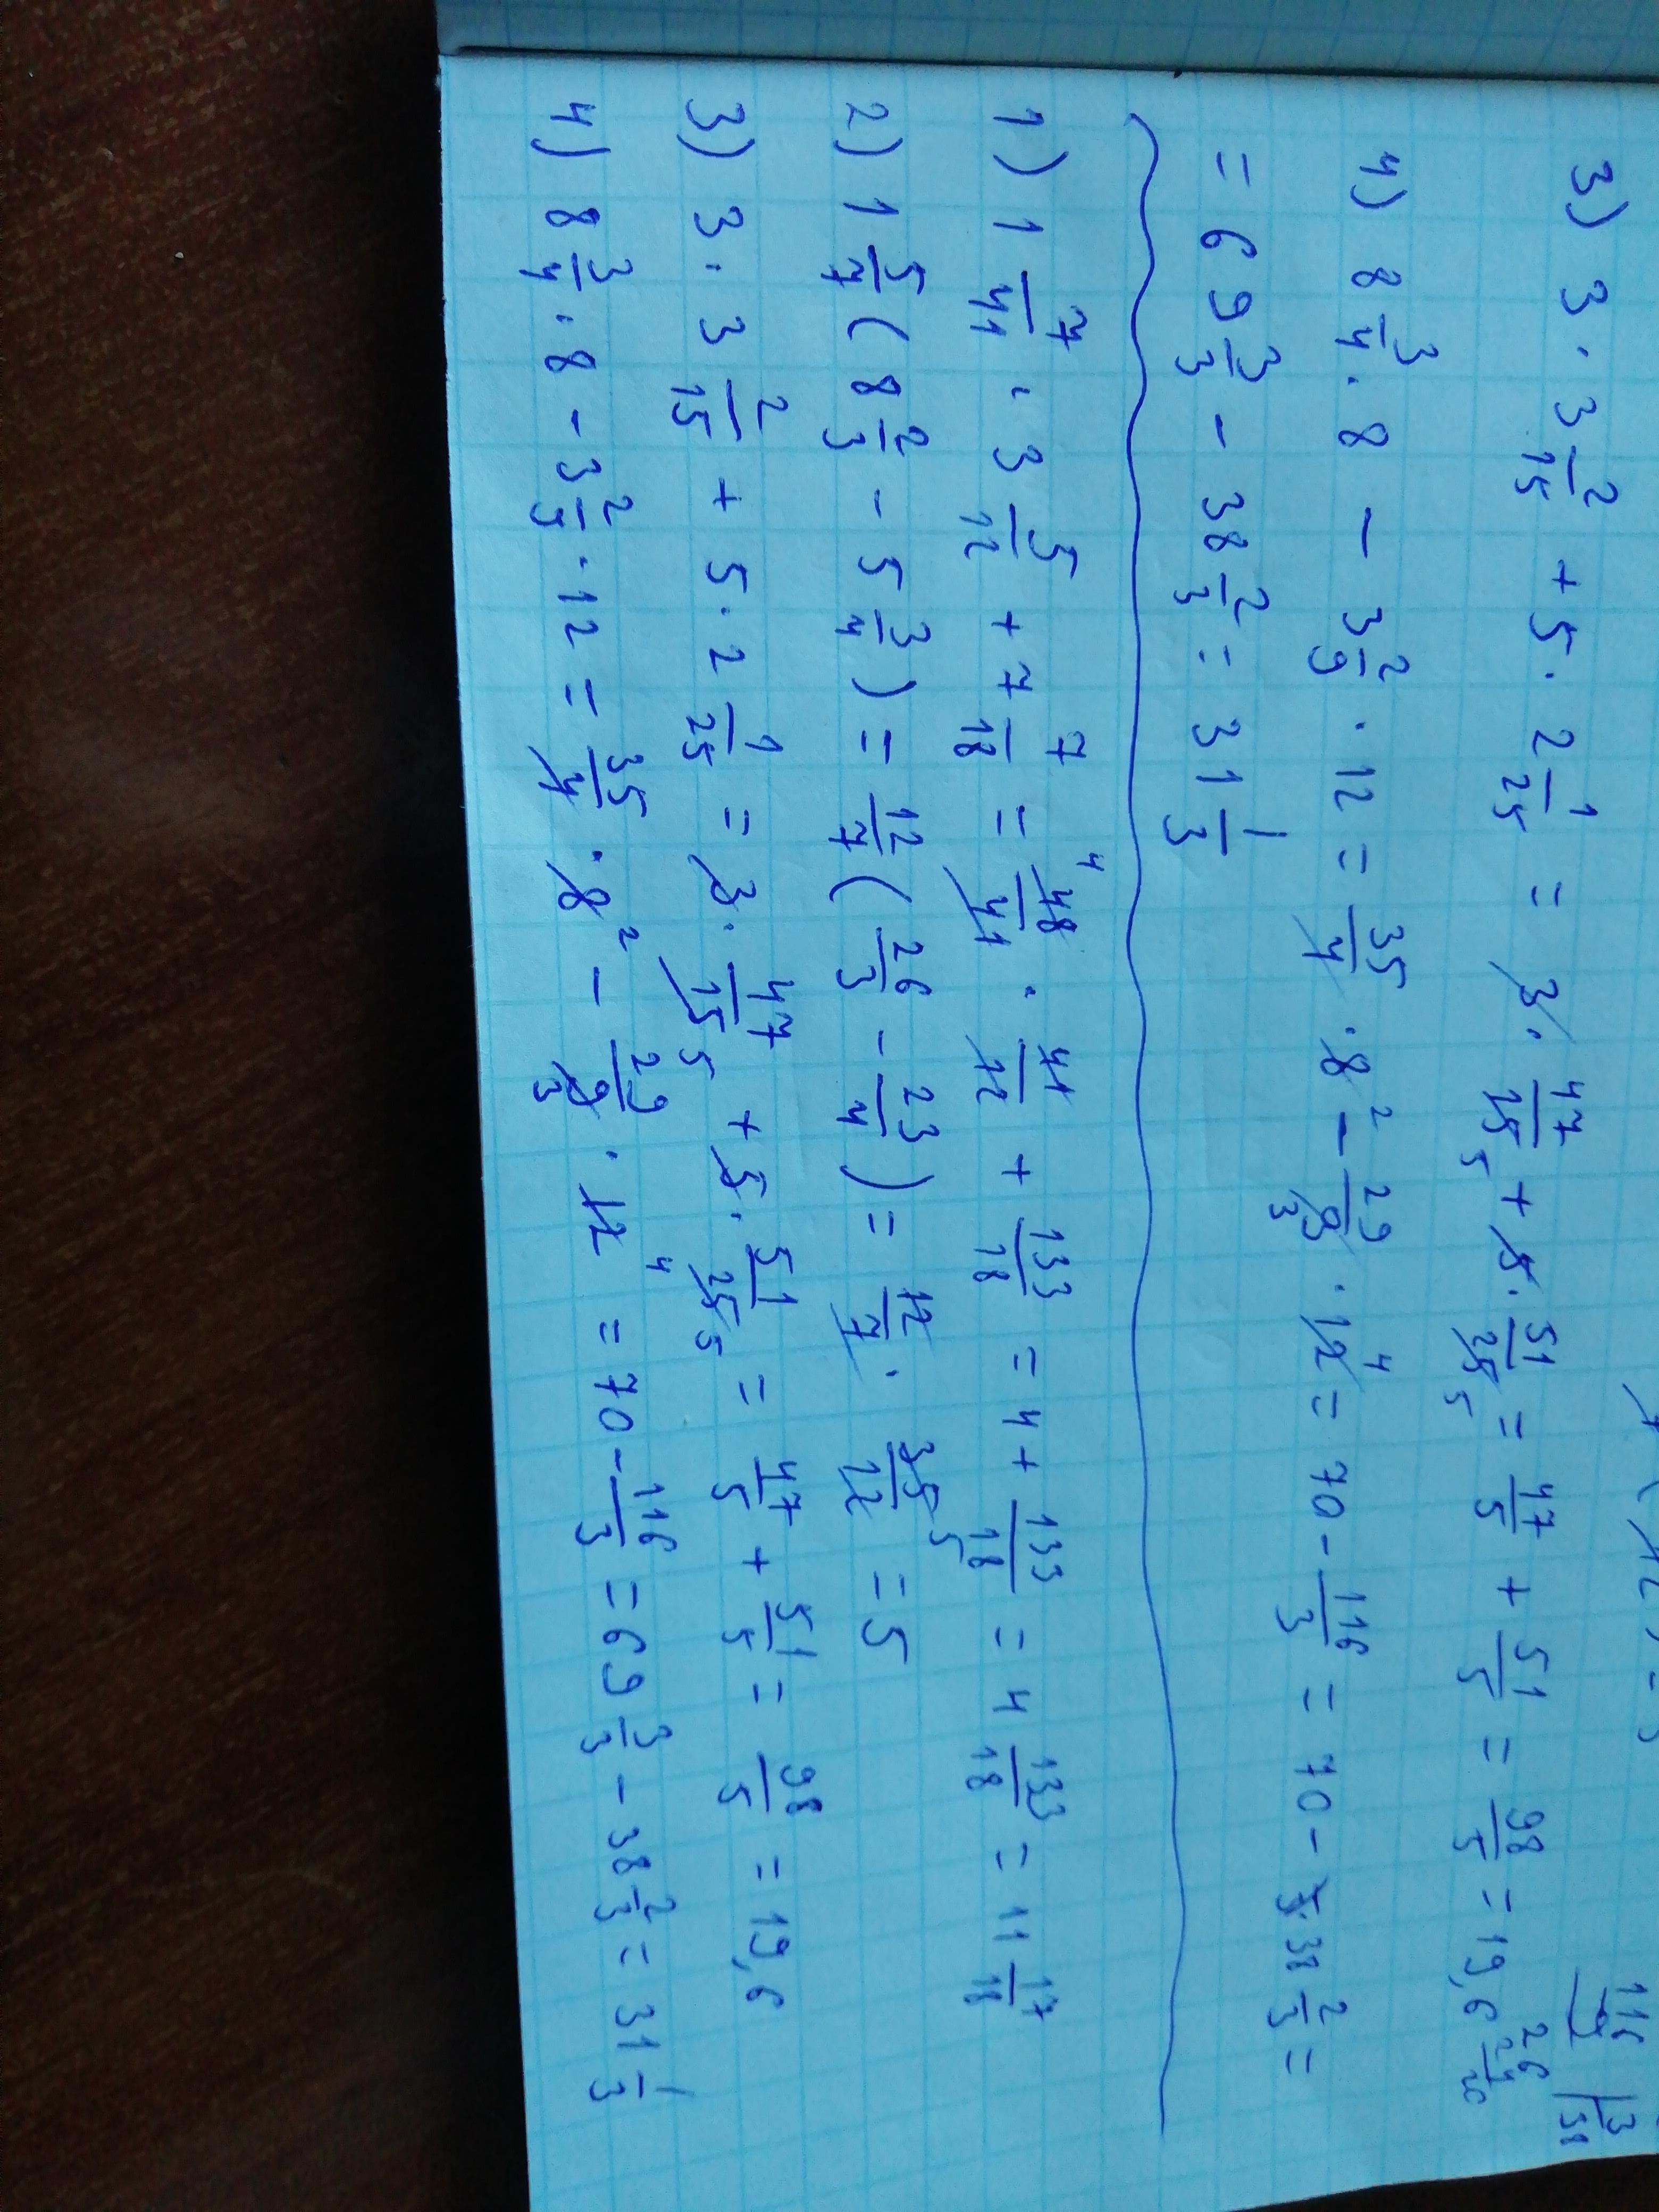 3) 3 · 3 2/15 + 5 · 2 1/25 = 3 · 47/15 5 + 5 · 51/25 5 = 47/5 + 51/5 = 98/5 = 19,6
116 | 3
38
4) 8 3/4 · 8 - 3 2/9 · 12 = 35/4 · 8 2 - 29/9 3 · 12 4 = 70 - 116/3 = 70 - 38 2/3 =
= 69 3/3 - 38 2/3 = 31 1/3
1) 1 7/41 · 3 5/12 + 7 7/18 = 4 48/41 · 41/12 + 133/18 = 4 + 133/18 = 4 133/18 = 11 17/18
2) 1 5/7 ( 8 2/3 - 5 3/4 ) = 12/7 ( 26/3 - 23/4 ) = 12/7 · 35/12 5 = 5
3) 3 · 3 2/15 + 5 · 2 1/25 = 3 · 47/15 5 + 5 · 51/25 5 = 47/5 + 51/5 = 98/5 = 19,6
4) 8 3/4 · 8 - 3 2/9 · 12 = 35/4 · 8 2 - 29/9 3 · 12 4 = 70 - 116/3 = 69 3/3 - 38 2/3 = 31 1/3